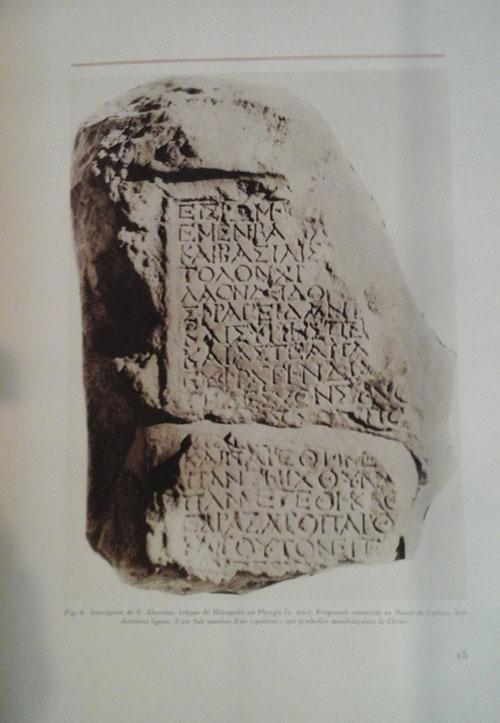 ΕΙΣΡΩΜ
ΕΜΕΝΒΑ
ΚΑΙΒΑΣΙΛΙΣ
ΤΟΛΟΝΧΡ
ΛΑΟΝΔΕΙΔΟΝ
ΣΦΡΑΓΕΙΔΑΝΕ
ΚΑΙΣΥΡΙΗΣΠΕ
ΚΑΙΑΣΤΕΑΠΑ
ΕΥΦΡΑΤΗΝΔΙΑ
ΚΑΙΠΑΡΕΘΗΚΕ
ΠΑΝΤΗΙΧΘΥΝΑ
ΠΑΝΜΕΓΕΘΗΚΑΘ
ΕΔΡΑΞΑΤΟΠΑΡΘ
ΚΑΙΤΟΥΤΟΝΕΠΕ
Fig. 6. Inscription de S. Abercius, évêque de Hiérapolis en Phrygie (v. 200). Fragments conservés au Musée du Latran. Aux
dernières lignes, il est fait mention d'un « poisson » qui symbolise manifestement le Christ.